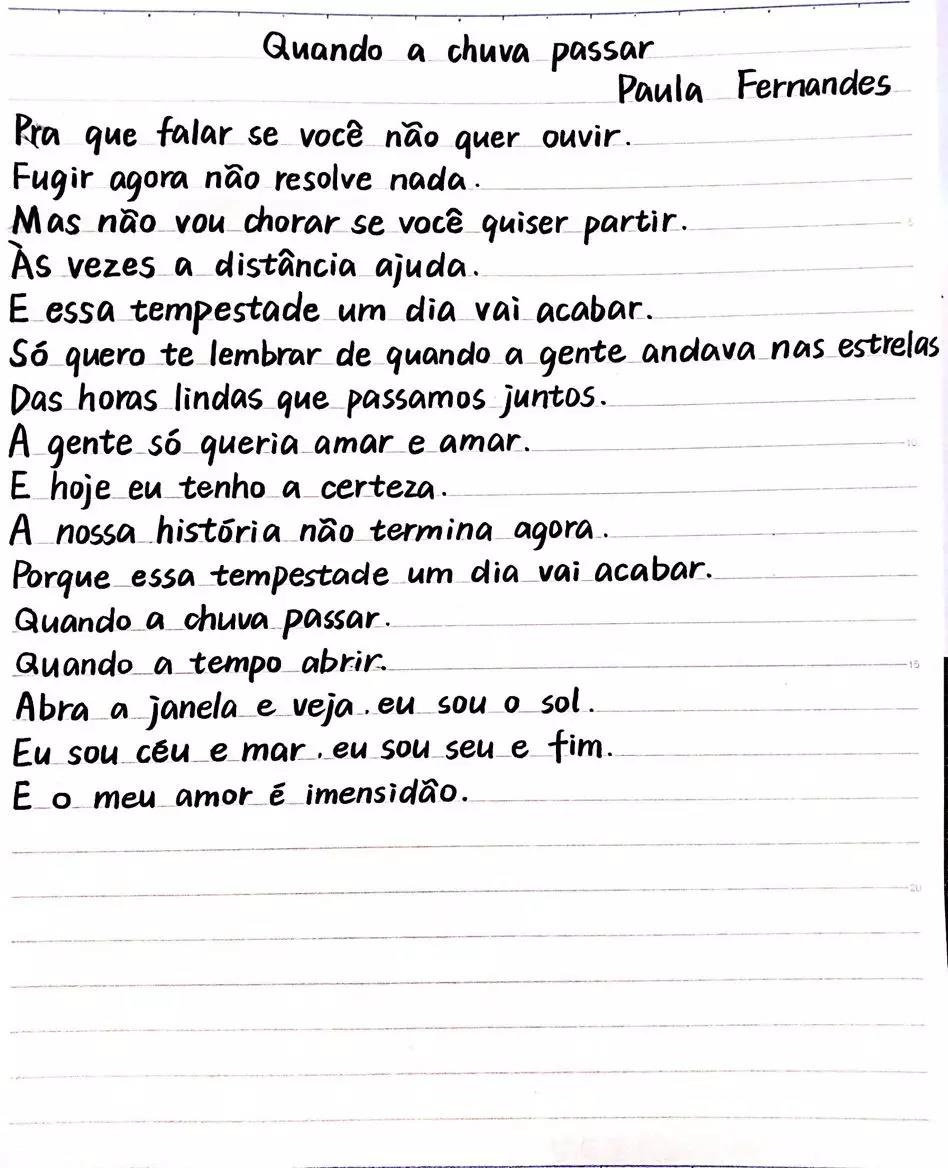 Quando a chuva passar
Paula Fernandes
Pra que falar se você não quer ouvir.
Fugir agora não resolve nada.
Mas não vou chorar se você quiser partir.
Às vezes a distância ajuda.
E essa tempestade um dia vai acabar.
Só quero te lembrar de quando a gente andava nas estrelas
Das horas lindas que passamos juntos.
A gente só queria amar e amar.
E hoje eu tenho a certeza.
A nossa história não termina agora.
Porque essa tempestade um dia vai acabar.
Quando a chuva passar.
Quando a tempo abrir.
Abra a janela e veja. eu sou o sol.
Eu sou céu e mar. eu sou seu e fim.
E o meu amor é imensidão.